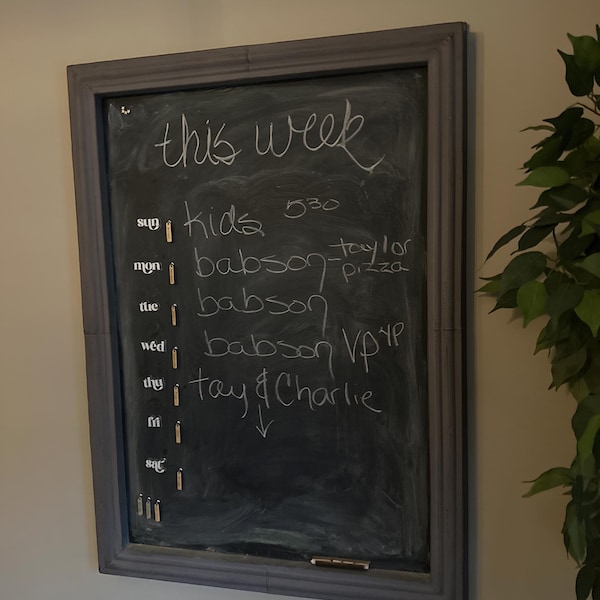 this week
sun kids 530
mon babson - taylor pizza
tue babson
wed babson VP YP
thu tay & Charlie
fri ↓
sat